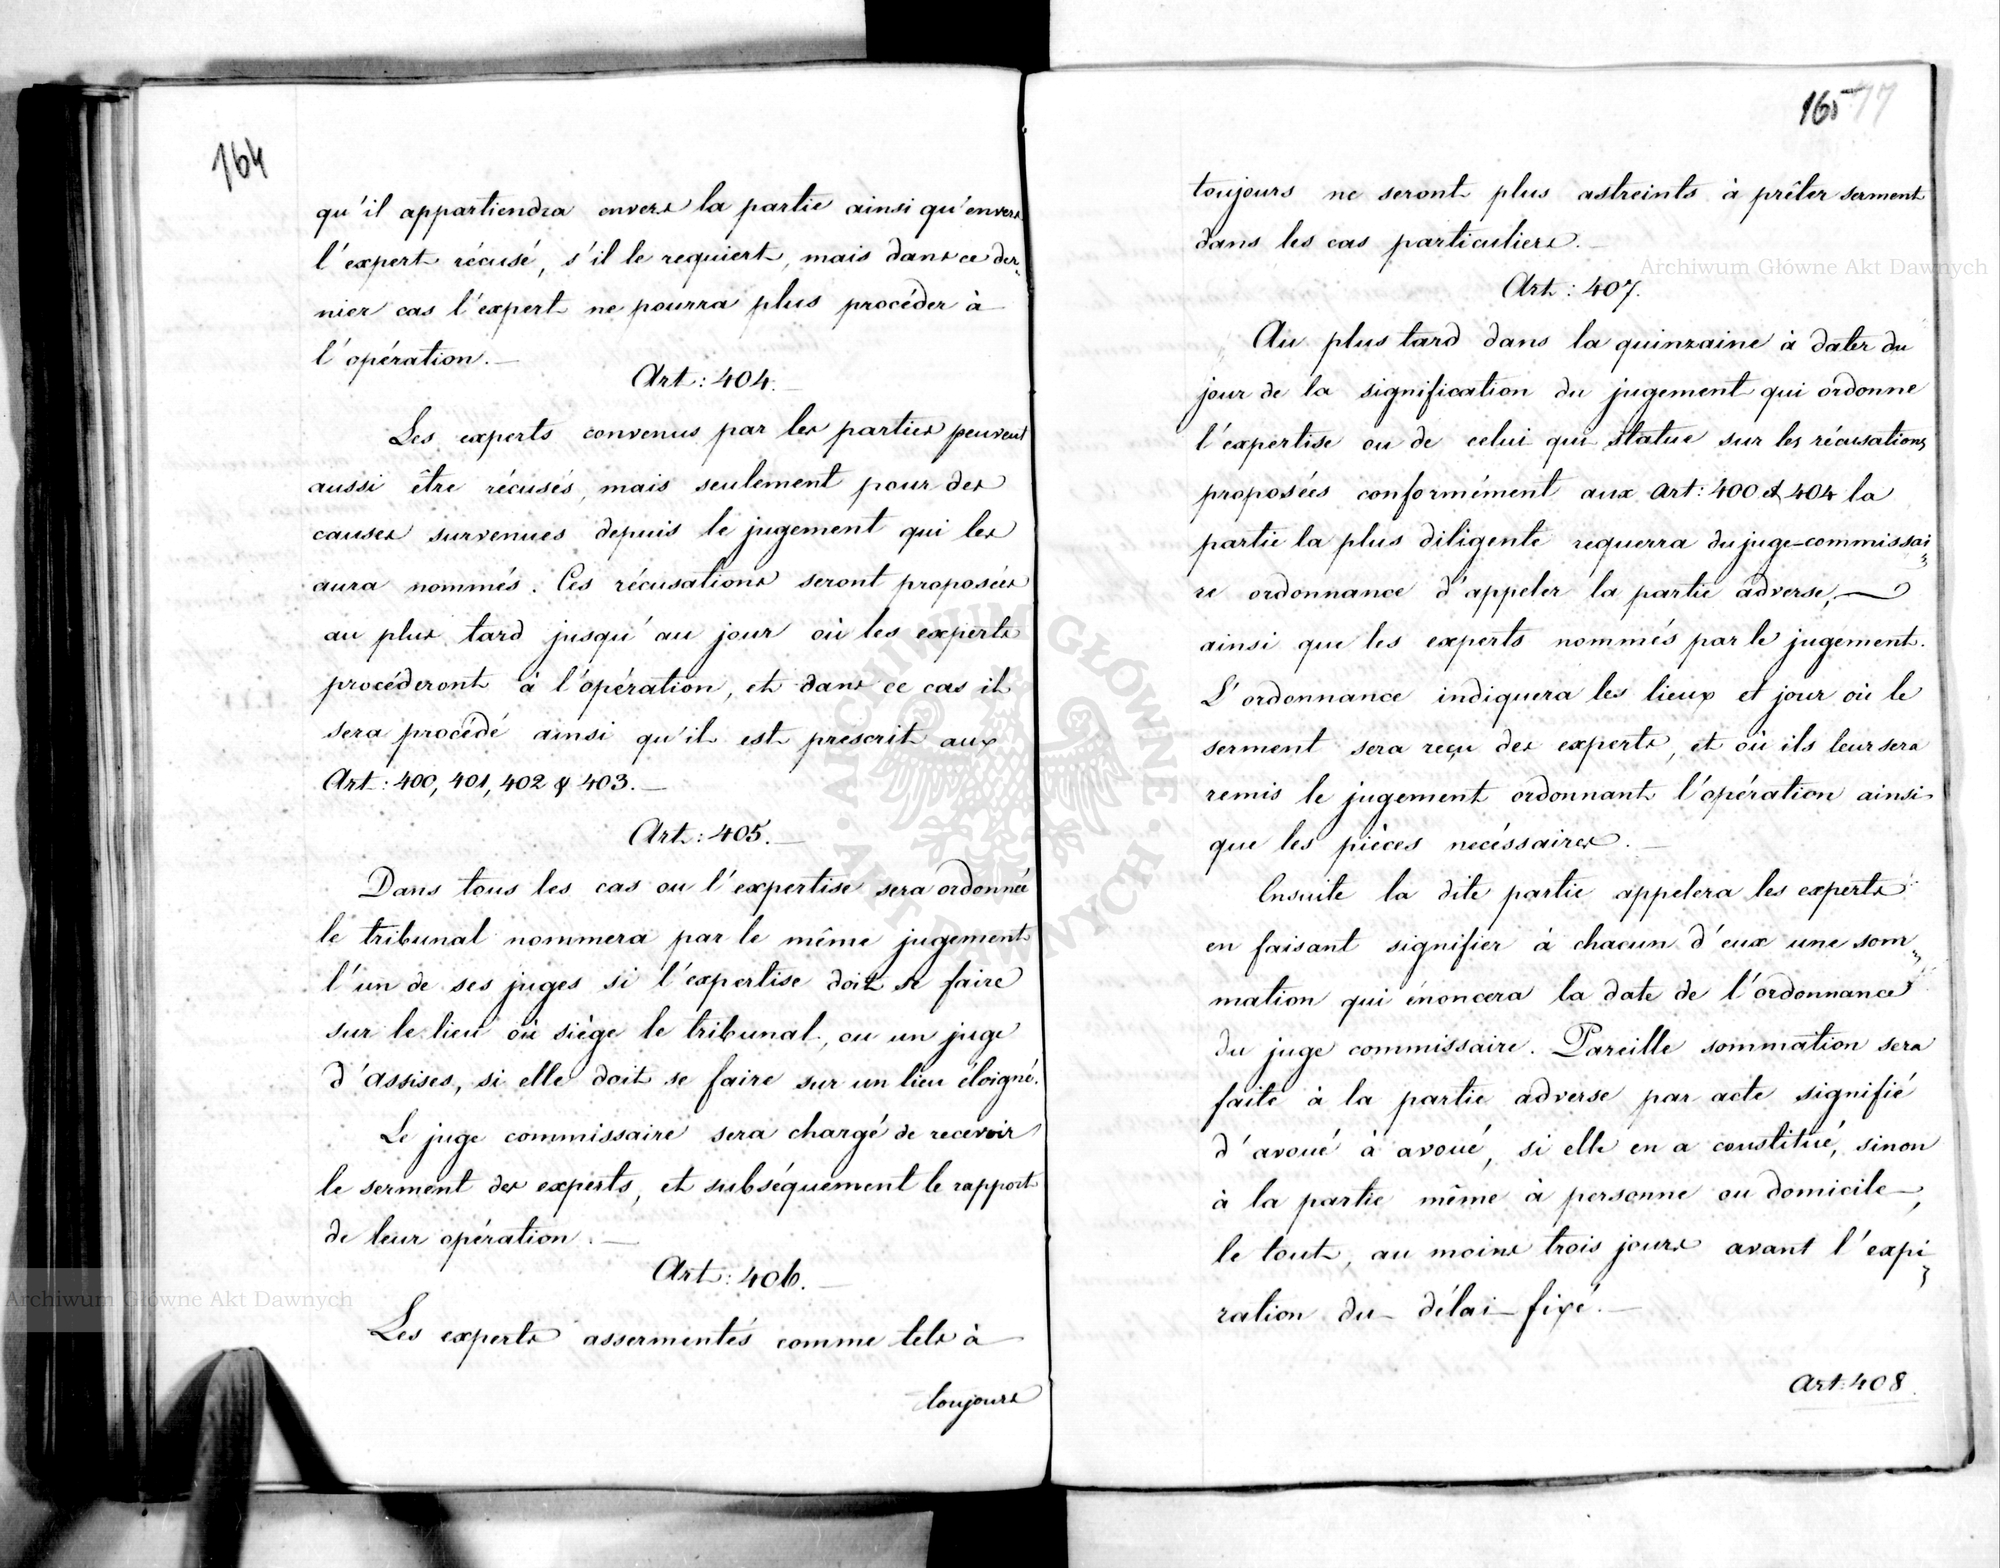 164
qu'il appartiendra envers la partie ainsi qu'envers
l'expert récusé, s'il le requiert, mais dans ce der-
nier cas l'expert ne pourra plus procéder à
l'opération.—
Art: 404.—
Les experts convenus par les parties peuvent
aussi être récusés, mais seulement pour des
causes survenues depuis le jugement qui les
aura nommés. Ces récusations seront proposées
au plus tard jusqu'au jour où les experts
procéderont à l'opération, et dans ce cas il
sera procédé ainsi qu'il est prescrit aux
Art: 400, 401, 402 & 403.—
Art: 405.—
Dans tous les cas ou l'expertise sera ordonnée
le tribunal nommera par le même jugement
l'un de ses juges si l'expertise doit se faire
sur le lieu où siège le tribunal, ou un juge
d'assises, si elle doit se faire sur un lieu éloigné.
Le juge commissaire sera chargé de recevoir
le serment des experts, et subséquement le rapport
de leur opération.—
Art: 406.—
Les experts assermentés comme tels à
toujours
165 77
toujours ne seront plus astreints à prêter serment
dans les cas particuliers.—
Art: 407.
Au plus tard dans la quinzaine à dater du
jour de la signification du jugement qui ordonne
l'expertise ou de celui qui statue sur les récusations
proposées conformément aux Art: 400 et 404 la
partie la plus diligente requerra du juge-commissai-
re ordonnance d'appeler la partie adverse,—
ainsi que les experts nommés par le jugement.
L'ordonnance indiquera les lieux et jour où le
serment sera reçu des experts, et où ils leur sera
remis le jugement ordonnant l'opération ainsi
que les pièces necéssaires.—
Ensuite la dite partie appelera les experts
en faisant signifier à chacun d'eux une som-
mation qui énoncera la date de l'ordonnance
du juge commissaire. Pareille sommation sera
faite à la partie adverse par acte signifié
d'avoué à avoué, si elle en a constitué, sinon
à la partie même à personne ou domicile—,
le tout, au moins trois jours avant l'expi-
ration du délai fixé.—
Art: 408.
Archiwum Główne Akt Dawnych
Archiwum Główne Akt Dawnych
ARCHIWUM GŁÓWNE AKT DAWNYCH